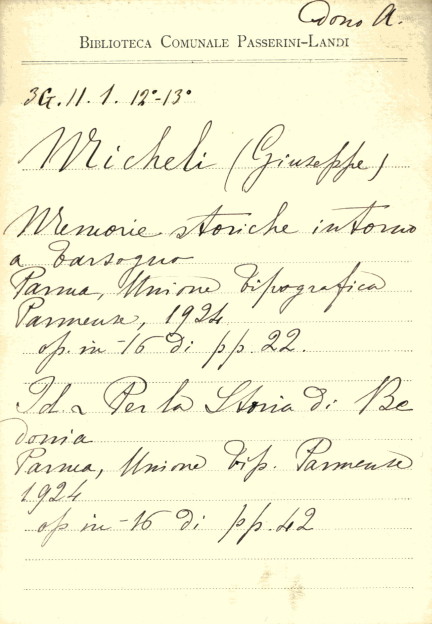 dono A.
BIBLIOTECA COMUNALE PASSERINI-LANDI
3G. 11. 1. 12°-13°
Micheli (Giuseppe)
Memorie storiche intorno
a Tarsogno
Parma, Unione Tipografica
Parmense, 1924
op. in-16 di pp. 22.
Id. Per la Storia di Be
donia
Parma, Unione Tip. Parmense
1924
op in-16 di pp. 42